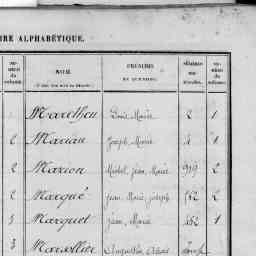 IRE ALPHABÉTIQUE.
NOM
PRÉNOMS
Maretheu Louis Marie 2 1
2 Marian Joseph Marie 4 1
2 Marion Michel, Jean, Marie 919 2
2 Marqué Jean, Marie, Joseph 162 2
3 Marquet Jean, Marie 162 1
3 Marsollier Augustin